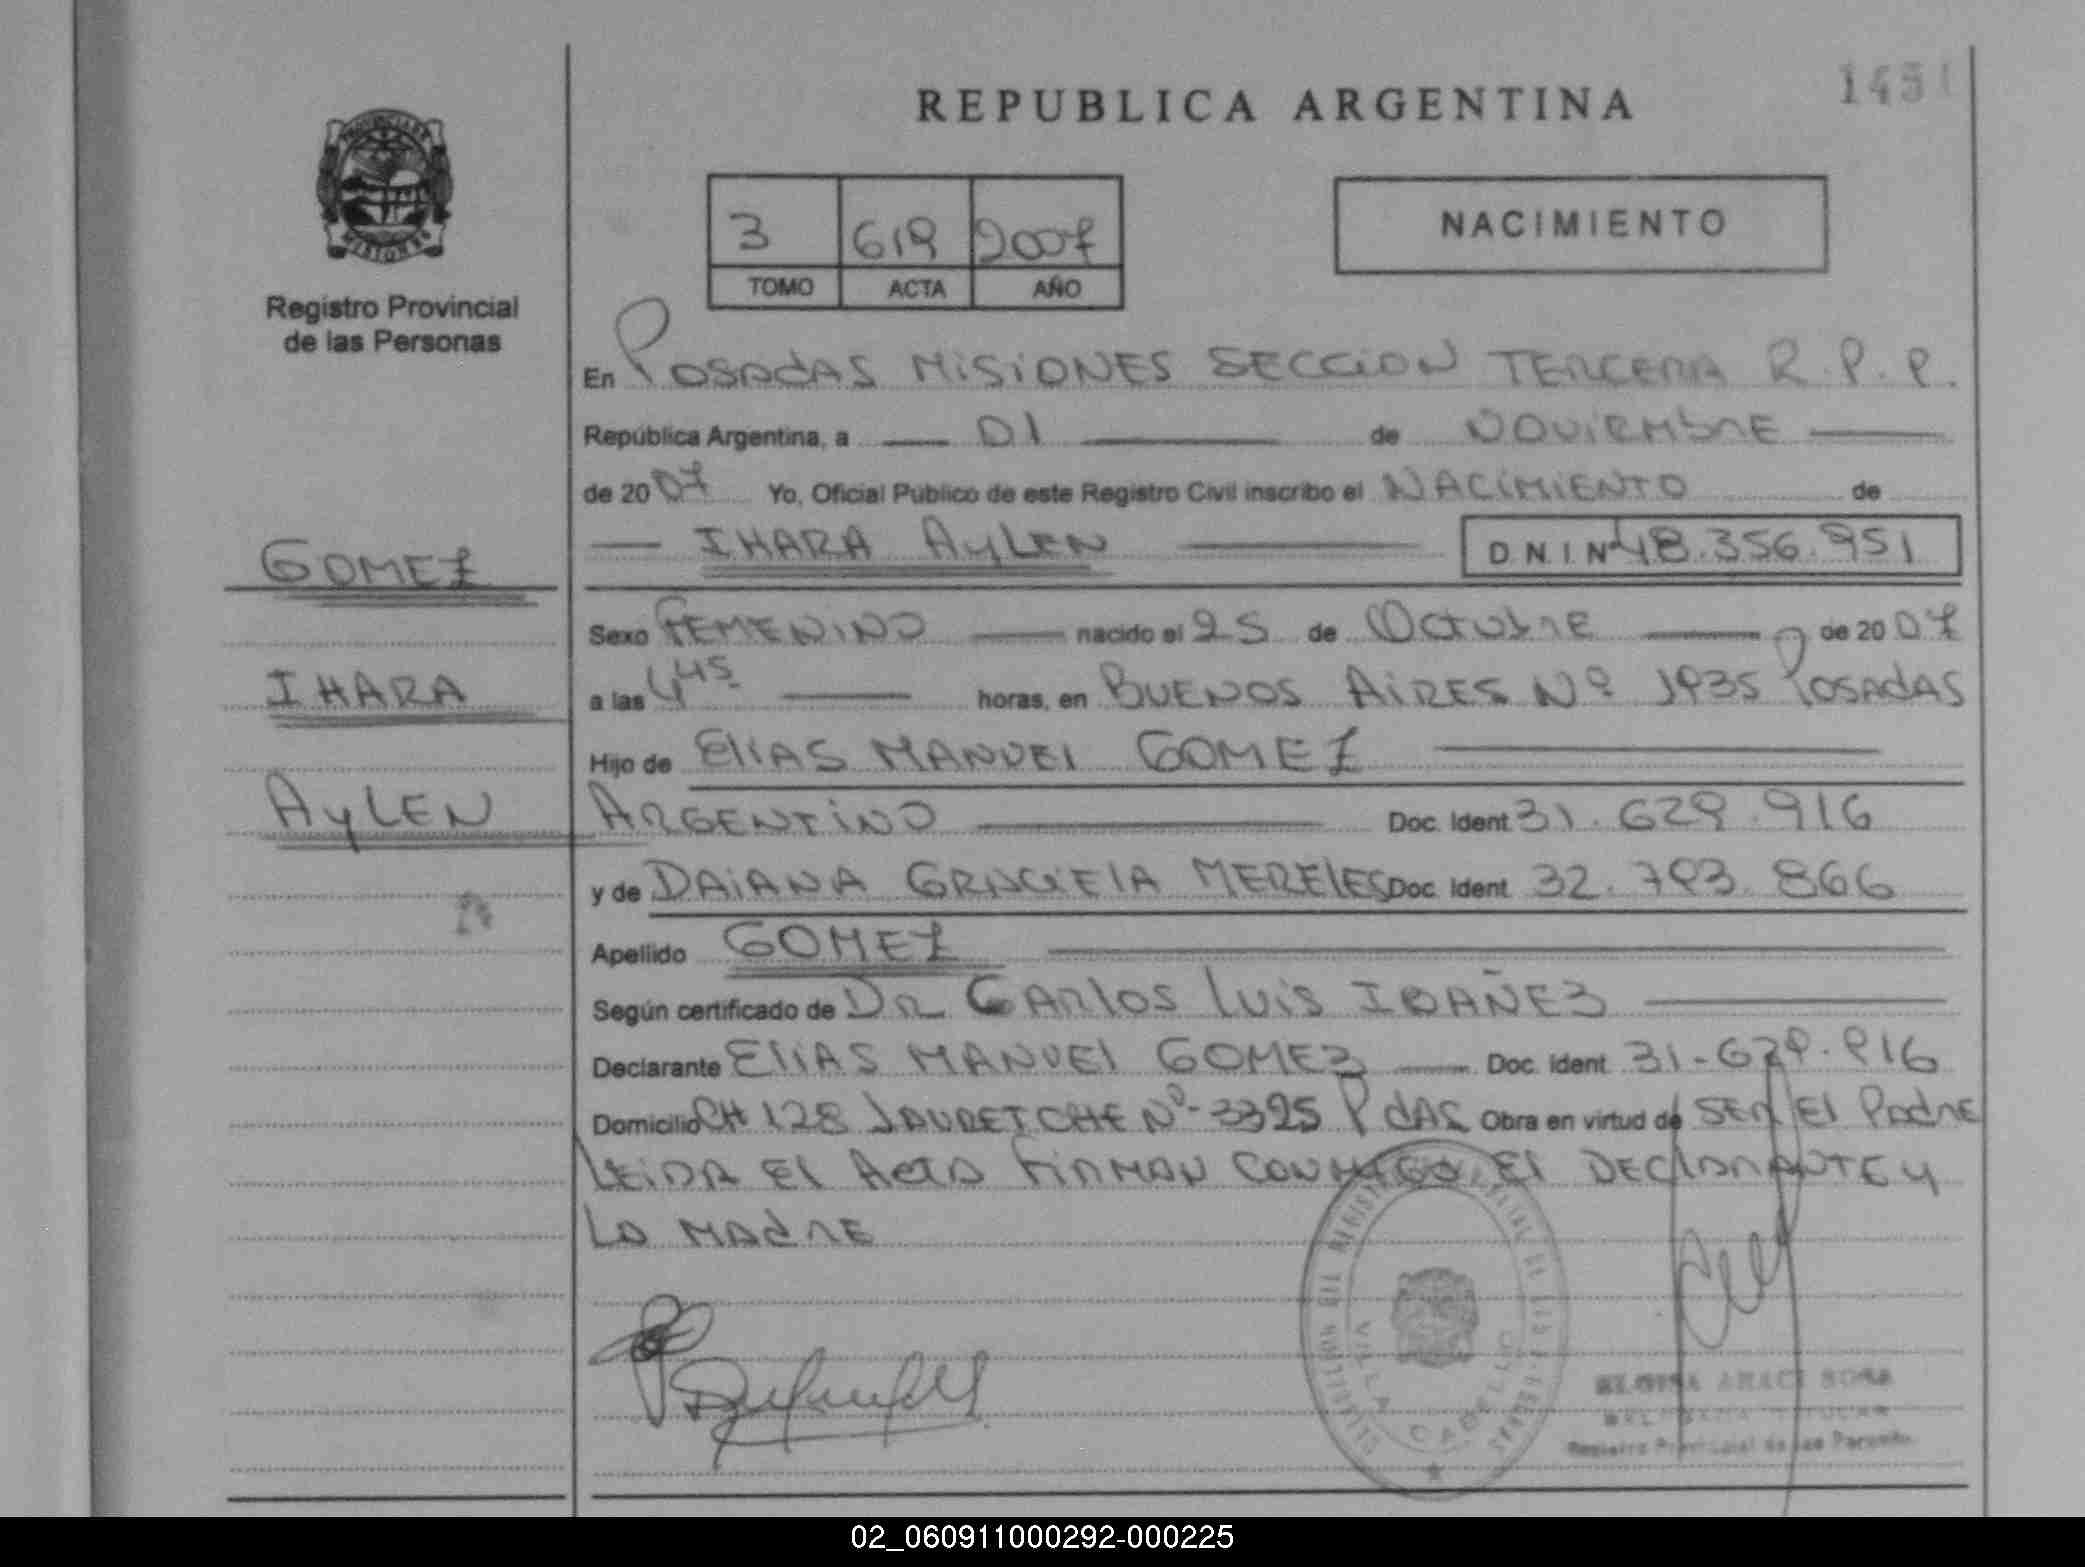 REPUBLICA ARGENTINA
1451
PROVINCIA DE
MISIONES
Registro Provincial
de las Personas
3 619 2007
TOMO ACTA AÑO
NACIMIENTO
En POSADAS MISIONES SECCION TERCERA R.P.P.
República Argentina, a 01 de NOVIEMBRE
de 2007 Yo, Oficial Público de este Registro Civil inscribo el NACIMIENTO de
IHARA AYLEN D.N.I. Nº 48.356.951
GOMEZ
IHARA
AYLEN
Sexo FEMENINO nacido el 25 de OCTUBRE de 2007
a las 4 45 horas, en BUENOS AIRES Nº 1935 POSADAS
Hijo de ELIAS MANUEL GOMEZ
ARGENTINO Doc. Ident 31.629.916
y de DAIANA GRACIELA MERELES Doc. Ident 32.793.866
Apellido GOMEZ
Según certificado de DR CARLOS LUIS IBAÑEZ
Declarante ELIAS MANUEL GOMEZ Doc. Ident 31-629.916
Domicilio CH 128 JAURETCHE Nº 3325 PdAS Obra en virtud de SER EL PADRE
LEIDA EL ACTA FIRMAN CONMIGO EL DECLARANTE Y
LA MADRE
VILLA CABELLO
SOSA
TITULAR
Registro Provincial de las Personas
02_060911000292-000225